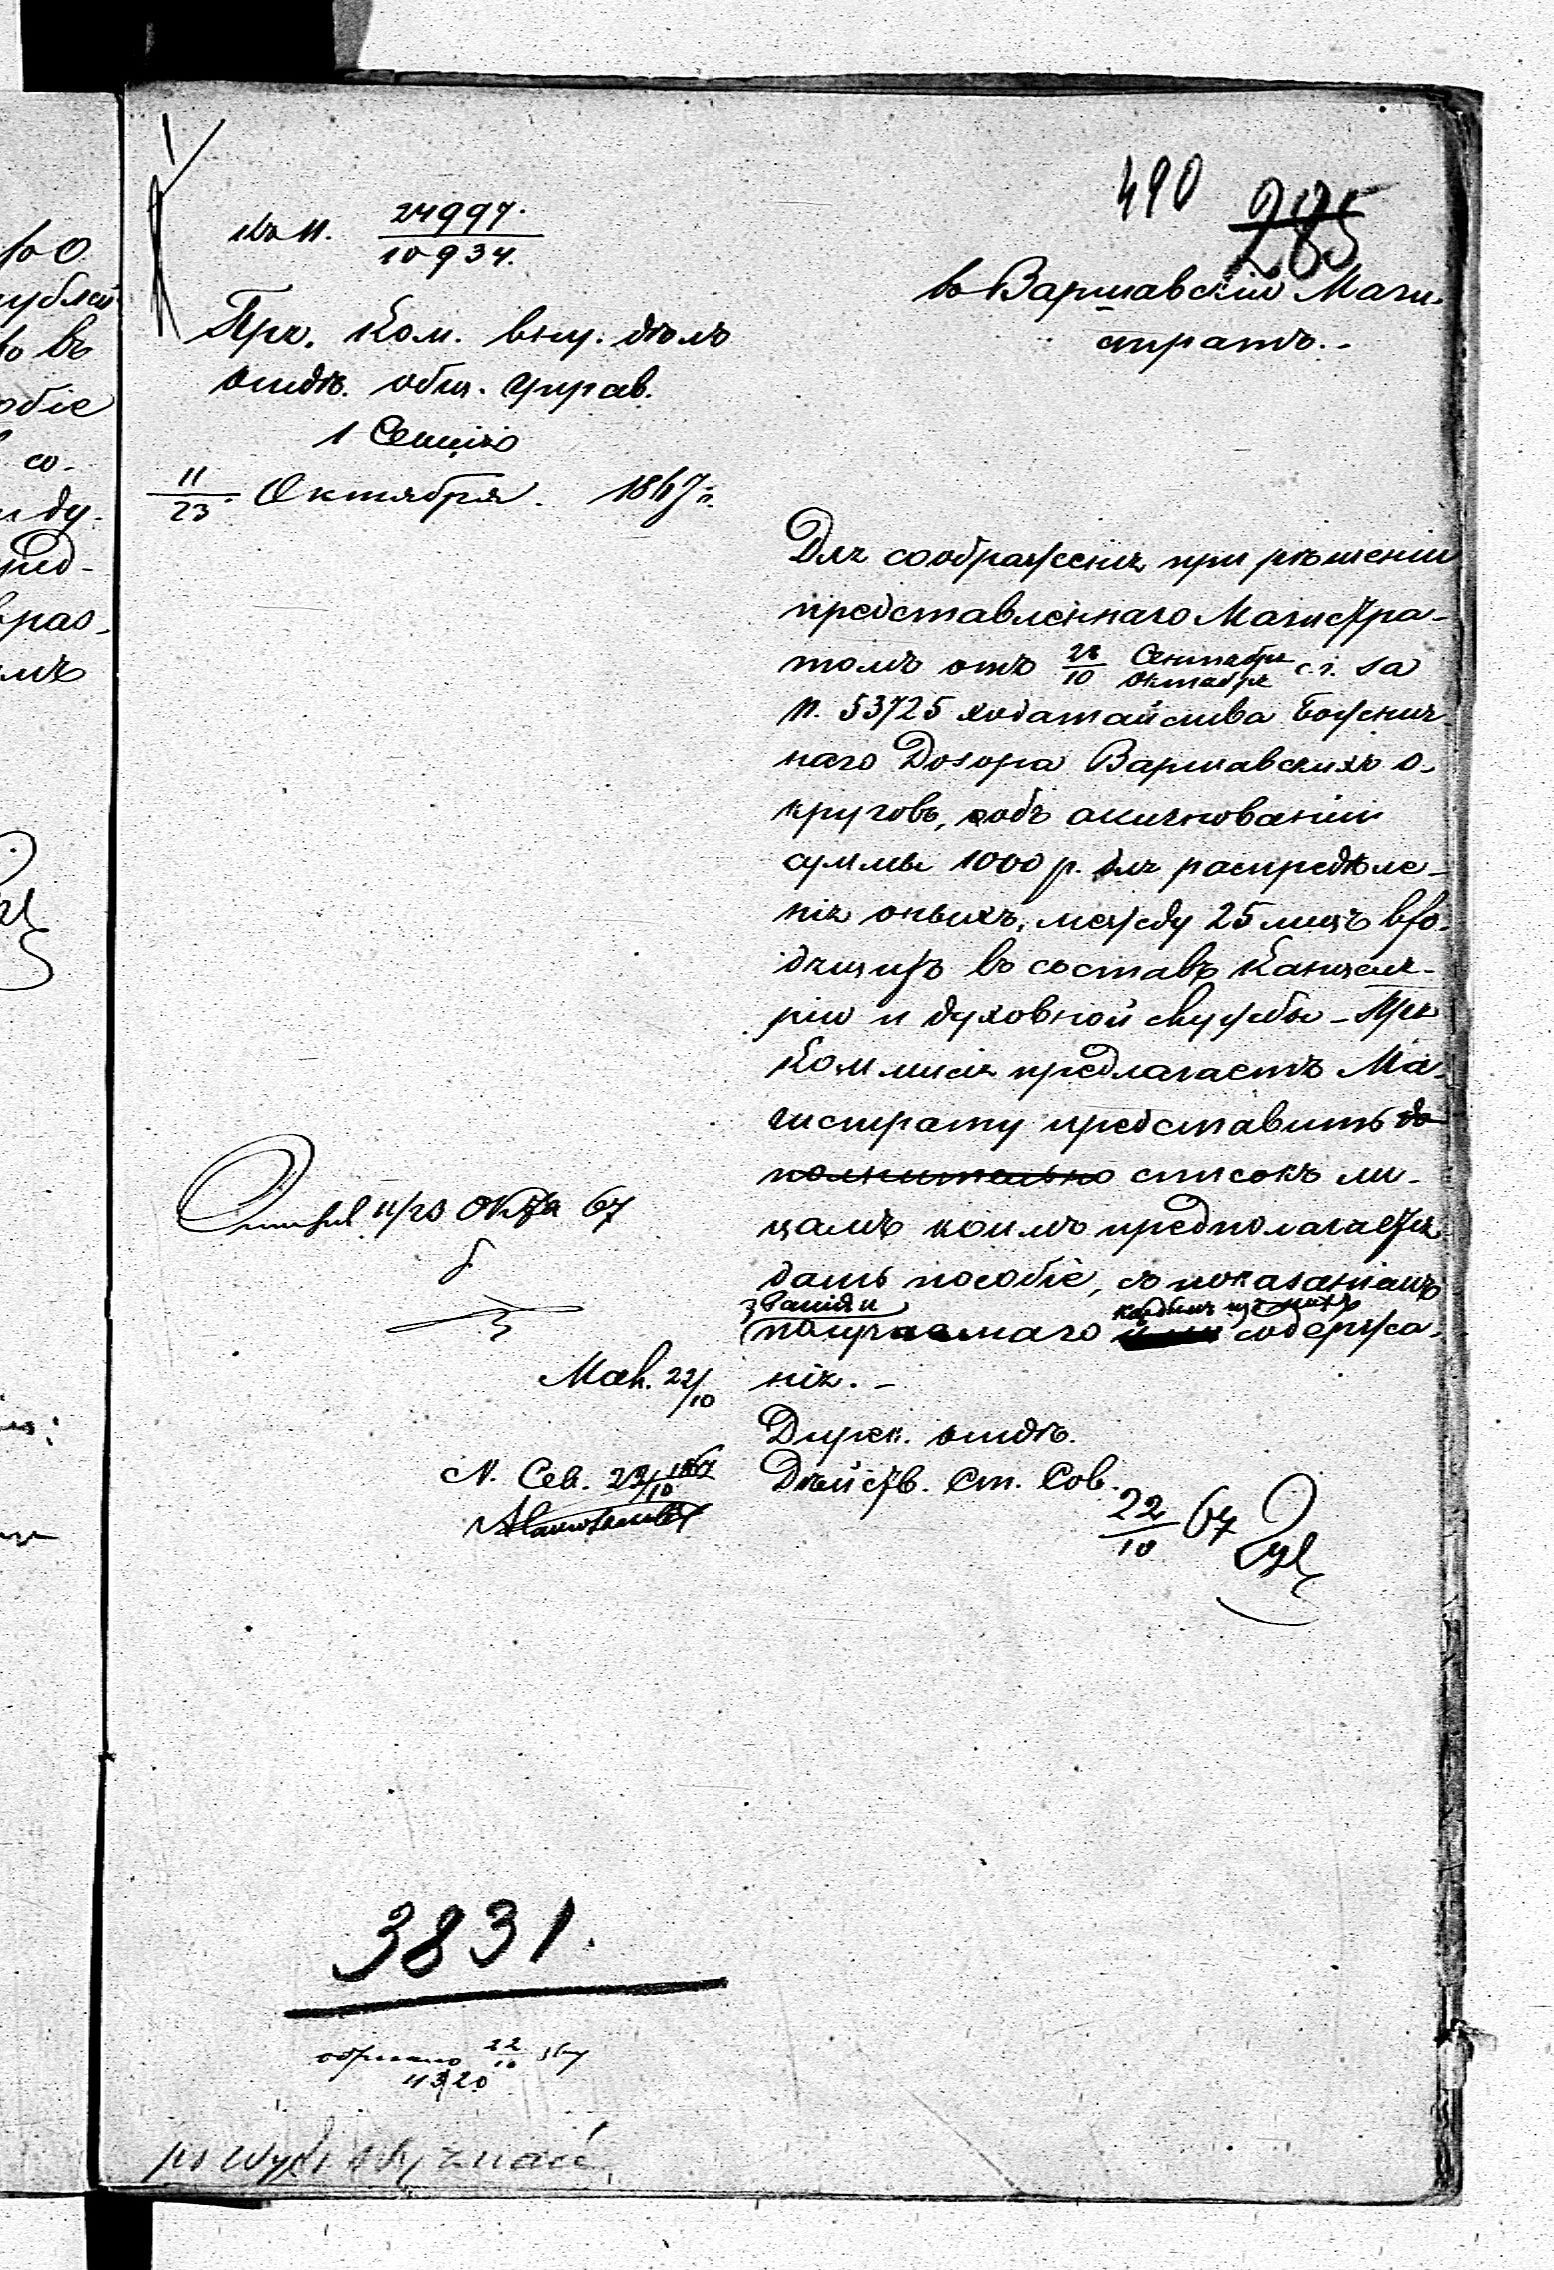 490
285
къ N. 24997.
10934.
Пр. Ком. вну. дѣлъ
отдѣ. общ. управ.
1 Секція
11/23 Октября. 1867 г.
въ Варшавскій Маги-
стратъ.-
Для соображенія при рѣшеніи
представленнаго Магистра-
томъ отъ 28/10 Сентября/Октября с. г. за
N. 53725 ходатайства Божнич-
наго Дозора Варшавскихъ о-
круговъ, объ асигнованіи
суммы 1000 р. для распредѣле-
нія оныхъ, между 25 лицъ вхо-
дящихъ въ составъ Канцеля-
ріи и духовной службы - Пра.
Коммисія предлагаетъ Ма-
гистрату представить до
полнительно списокъ ли-
цамъ коимъ предполагается
дать пособіе, съ показаніемъ
званія и каждымъ изъ нихъ
получаемаго содержа-
нія. -
Дирек. отдѣ.
Дѣйств. Ст. Сов.
22/10 67
Окт 67
Мак. 22/10
N. Сев. 22/10
3831.
22/10